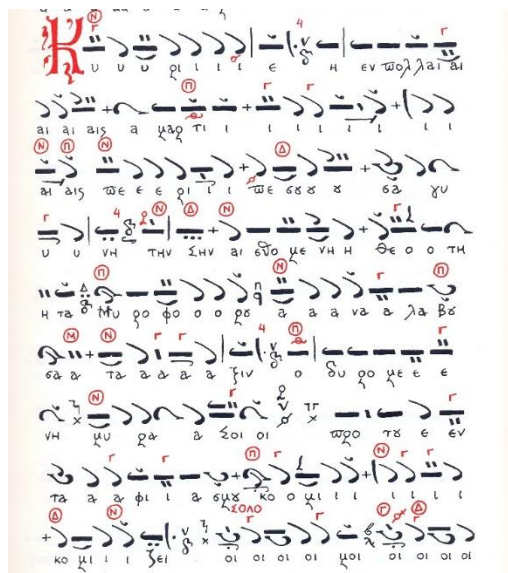 Κυ υ υ ρι ι ι ε η εν πολ λαι αι
αι αι αις α μαρ τι ι ι ι ι ι ι ι ι
αι αις πε ε ε ρι ι ι πε σου ου ου σα γυ
υ υ νη την Σην αι σθο με νη η θε ο ο τη
η τα Μυ ρο φο ο ο ρου α α α να α λα βου
σα α τα α α α α ξιν ο δυ ρο με ε ε
νη μυ ρα α Σοι οι προ του ε εν
τα α α φι ι α σμου κο ο μι ι ι ι ι ι
ΣΟΛΟ
κο μι ι ι ζει οι οι οι οι μοι οι οι οι οι